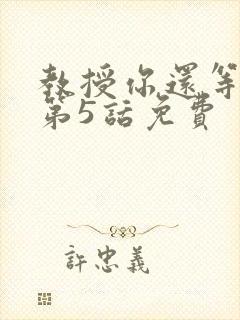 教授你還等
第5話免費
許忠義